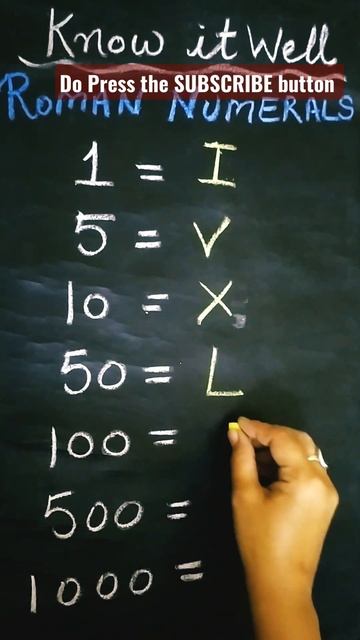 Know it Well
Do Press the SUBSCRIBE button
ROMAN NUMERALS
1 = I
5 = V
10 = X
50 = L
100 =
500 =
1000 =